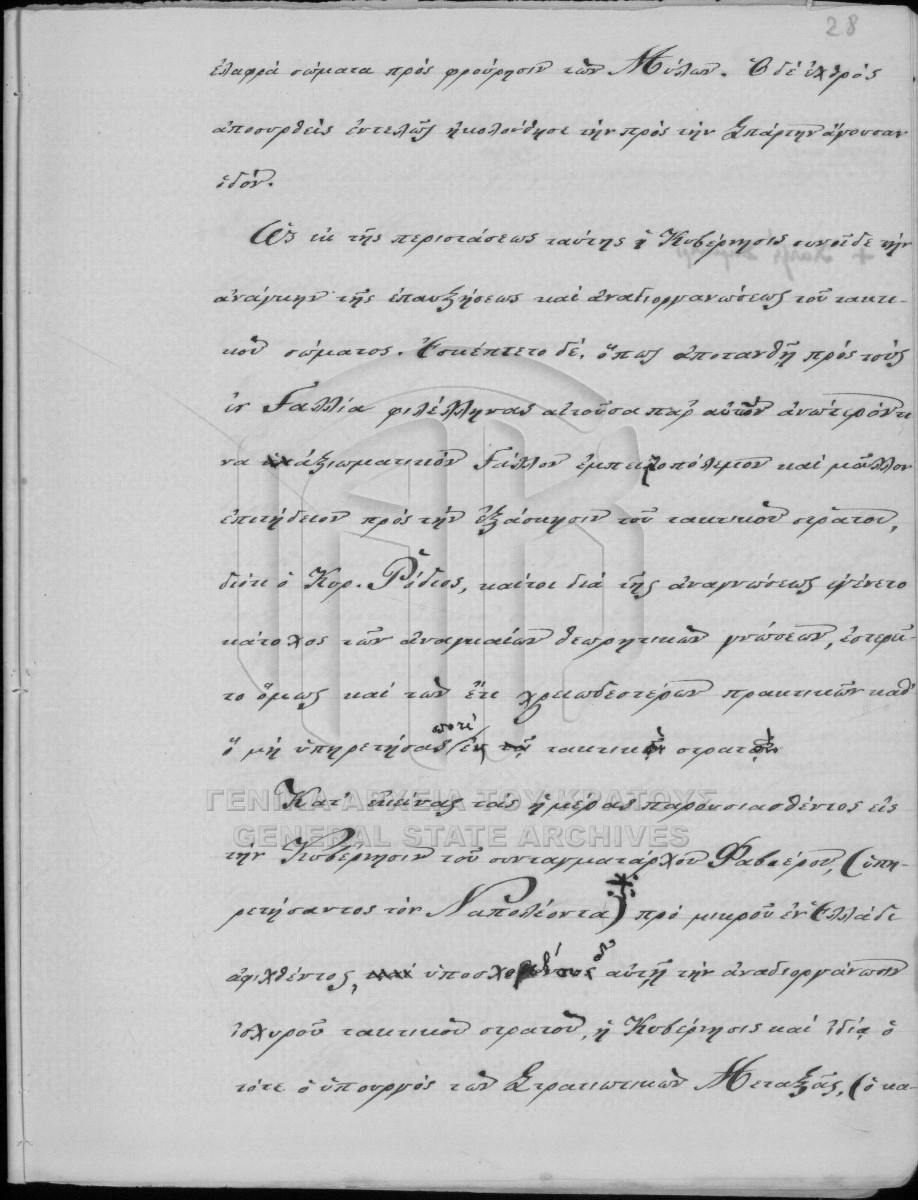 28
ἐλαφρά σώματα πρός φρούρησιν τῶν Μύλων. Ὁ δέ ἐχθρός
ἀποσυρθείς ἐντελῶς ἠκολούθησε τήν πρός τήν Σπάρτην ἄγουσαν
ὁδόν.
Ὡς ἐκ τῆς περιστάσεως ταύτης ἡ Κυβέρνησις συνοῖδε τήν
ἀνάγκην τῆς ἐπαυξήσεως καί ἀναδιοργανώσεως τοῦ τακτι-
κοῦ σώματος. Ἐσκέπτετο δέ, ὅπως ἀποτανθῇ πρός τούς
ἐν Γαλλίᾳ φιλέλληνας αἰτοῦσα παρ' αὐτῶν ἀνώτερόν τι
να ἀξιωματικόν Γάλλον ἐμπειροπόλεμον καί μᾶλλον
ἐπιτήδειον πρός τήν ἐξάσκησιν τοῦ τακτικοῦ στρατοῦ,
διότι ὁ Κυρ. Ῥόδιος, καίτοι διά τῆς ἀναγνώσεως ἐγένετο
κάτοχος τῶν ἀναγκαίων θεωρητικῶν γνώσεων, ἐστερεῖ-
το ὅμως καί τῶν ἔτι χρειωδεστέρων πρακτικῶν καθ'
ὅ μή ὑπηρετήσας ποτέ ἐν τακτικῷ στρατῷ
Κατ' ἐκείνας τάς ἡμέρας παρουσιασθέντος εἰς
τήν Κυβέρνησιν τοῦ συνταγματάρχου Φαβιέρου, (ὑπη-
ρετήσαντος τόν Ναπολέοντα) πρό μικροῦ ἐν Ἑλλάδι
ἀφιχθέντος, ὑποσχομένου δ' αὐτῇ τήν ἀναδιοργάνωσιν
ἰσχυροῦ τακτικοῦ στρατοῦ, ἡ Κυβέρνησις καί ἰδίᾳ ὁ
τότε ὁ ὑπουργός τῶν Στρατιωτικῶν Μεταξᾶς, (ὁ κα-
ΓΕΝΙΚΑ ΑΡΧΕΙΑ ΤΟΥ ΚΡΑΤΟΥΣ
GENERAL STATE ARCHIVES